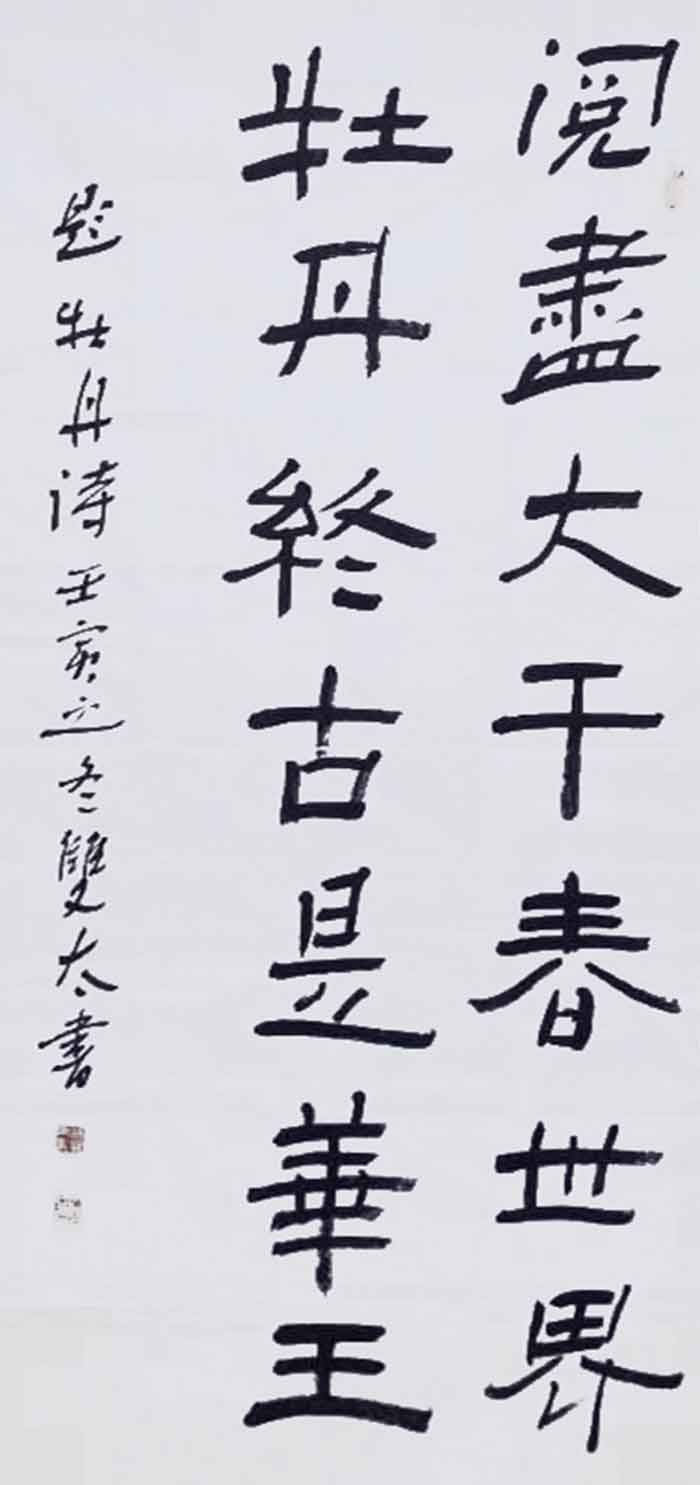 阅盡大千春世界
牡丹終古是華王
題牡丹诗壬寅之冬雙太書